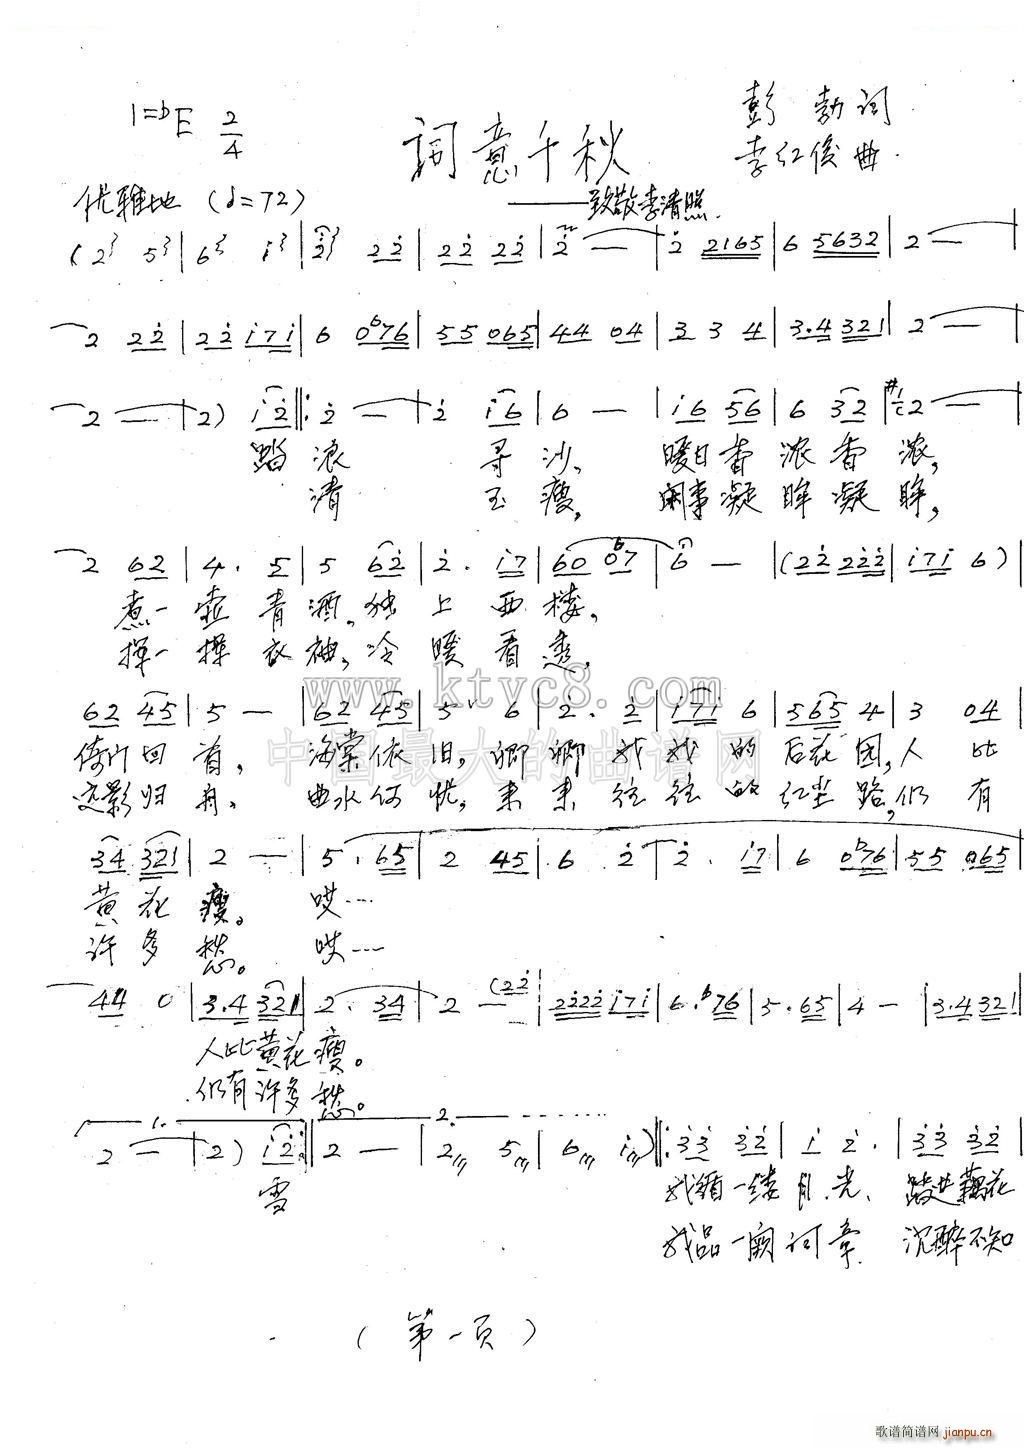 1=bE 2/4
彭勃词
詞意千秋
李红俊曲
优雅地 (♩=72)
——致敬李清照
(2 5|6 i|2 22|22 22|2 —|2 2165|6 5632|2 —|
2 22|22 i7i|6 0b76|55 065|44 04|3 3 4|3.4 321|2 —|
2 —|2) i2||:2 —|2 i6|6 —|i6 56|6 32|2 —|
踏浪 寻沙, 暖日香浓香浓,
清 玉瘦, 闲事凝眸凝眸,
2 62|4. 5|5 62|2. i7|60 0b7|6 —|(22 222|i7i 6)|
煮一壶青酒,独上西楼,
挥一挥衣袖,冷暖看透,
www.ktyc8.com
中国最大的曲谱网
62 45|5 —|62 45|5 6|2. 2|i7i 6|565 4|3 04|
倚门回首, 海棠依旧,卿卿我我的后花园,人比
恋影归舟, 曲水何忧,来来往往的红尘路,仍有
34 321|2 —|5. 65|2 45|6 2|2. i7|6 0b76|55 065|
黄花瘦。 哎…
许多愁。 哎…
44 0|3.4 321|2. 34|2 — (22|2222 i7i|6. b76|5. 65|4 —|3.4 321|
人比黄花瘦。
仍有许多愁。
1. 2.
2 —|2) i2:||2 —|2 5|6 i)||:33 32|i 2.|33 32|
雪 我循一缕月光、 踏进藕花
我品一阕词章 沉醉不知
(第一页)
歌谱简谱网 jianpu.cn